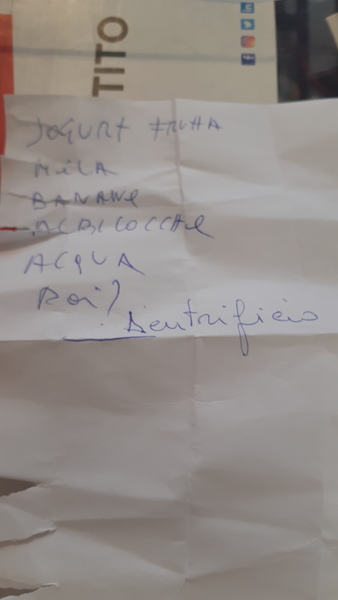 TITO
JOGURT FRUTTA
MELA
BANANE
ALBICOCCHE
ACQUA
Dentrificio